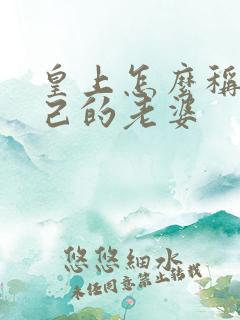 皇上怎麼稱
己的老婆
悠悠細水
未任同意禁止轉載